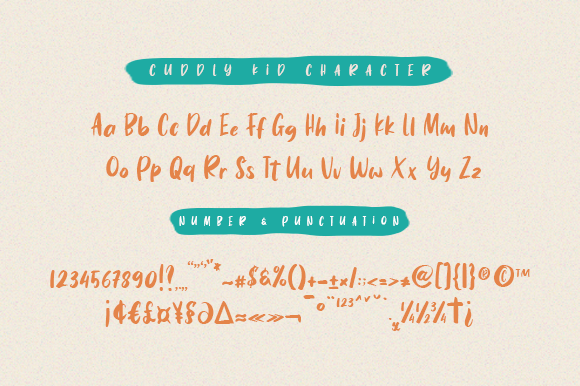 CUDDLY KiD CHARACTER
Aa Bb Cc Dd Ee Ff Gg Hh Ii Jj Kk Ll Mm Nn
Oo Pp Qq Rr Ss Tt Uu Vv Ww Xx Yy Zz
NUMBER & PUNCTUATION
1234567890!?,..,„ “”‘’"* ~#$&%()+-±×/:;<=>≠@[]{|}®©™
¡¢€£¤¥§∂∆≈«»¬¯°¨123^ˇ˘˙·¸¼½¾†¿